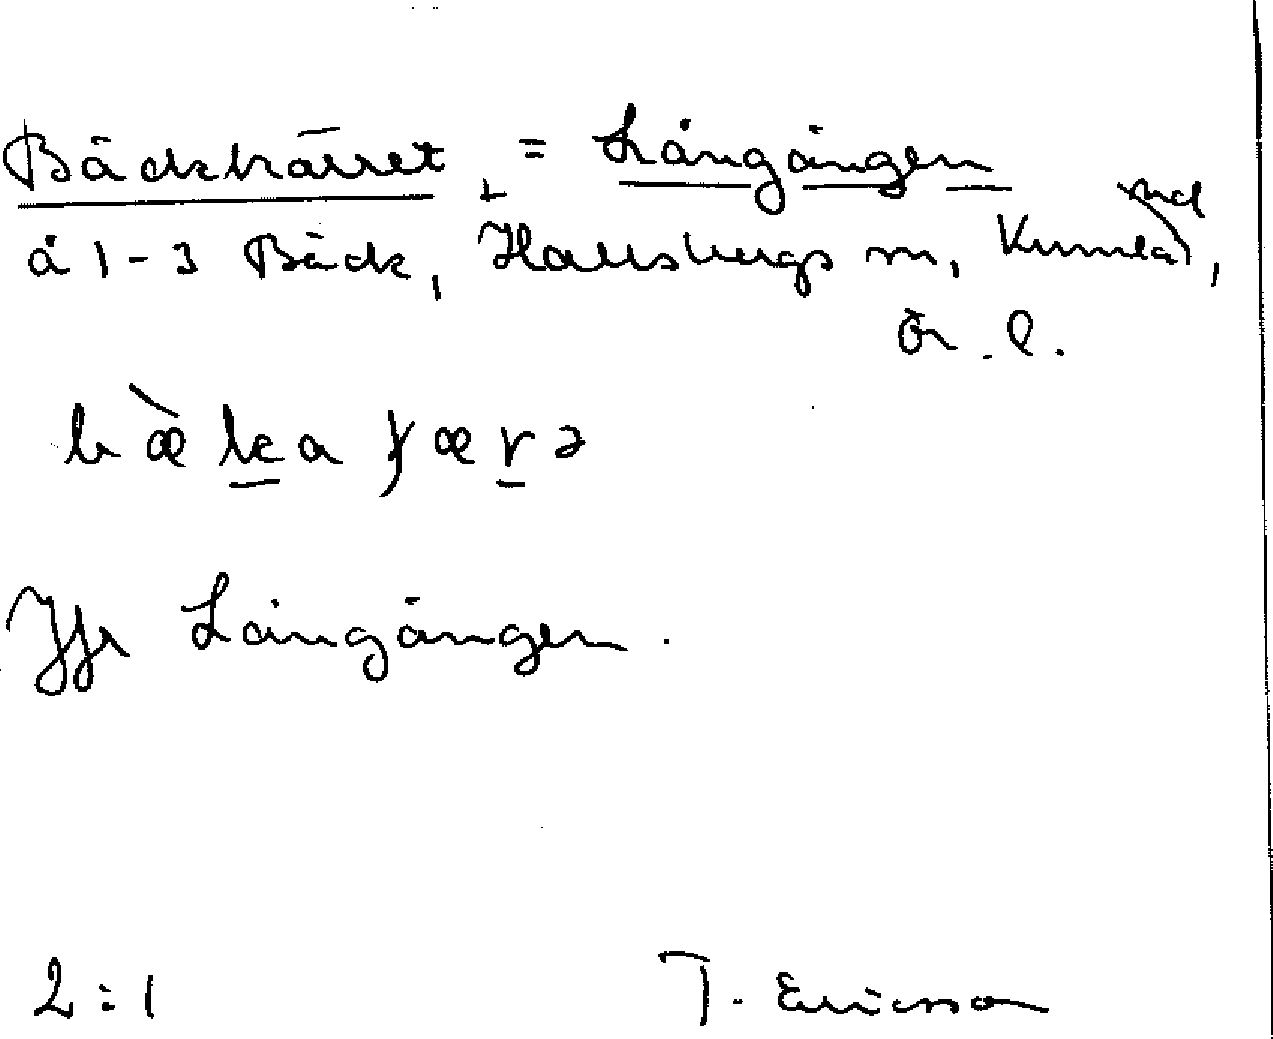 Bäckkärret = Långängen
å 1-3 Bäck, Hallsbergs m, Kumla snd,
Ör. l.
Jfr Långängen.
2:1 T. Ericsson